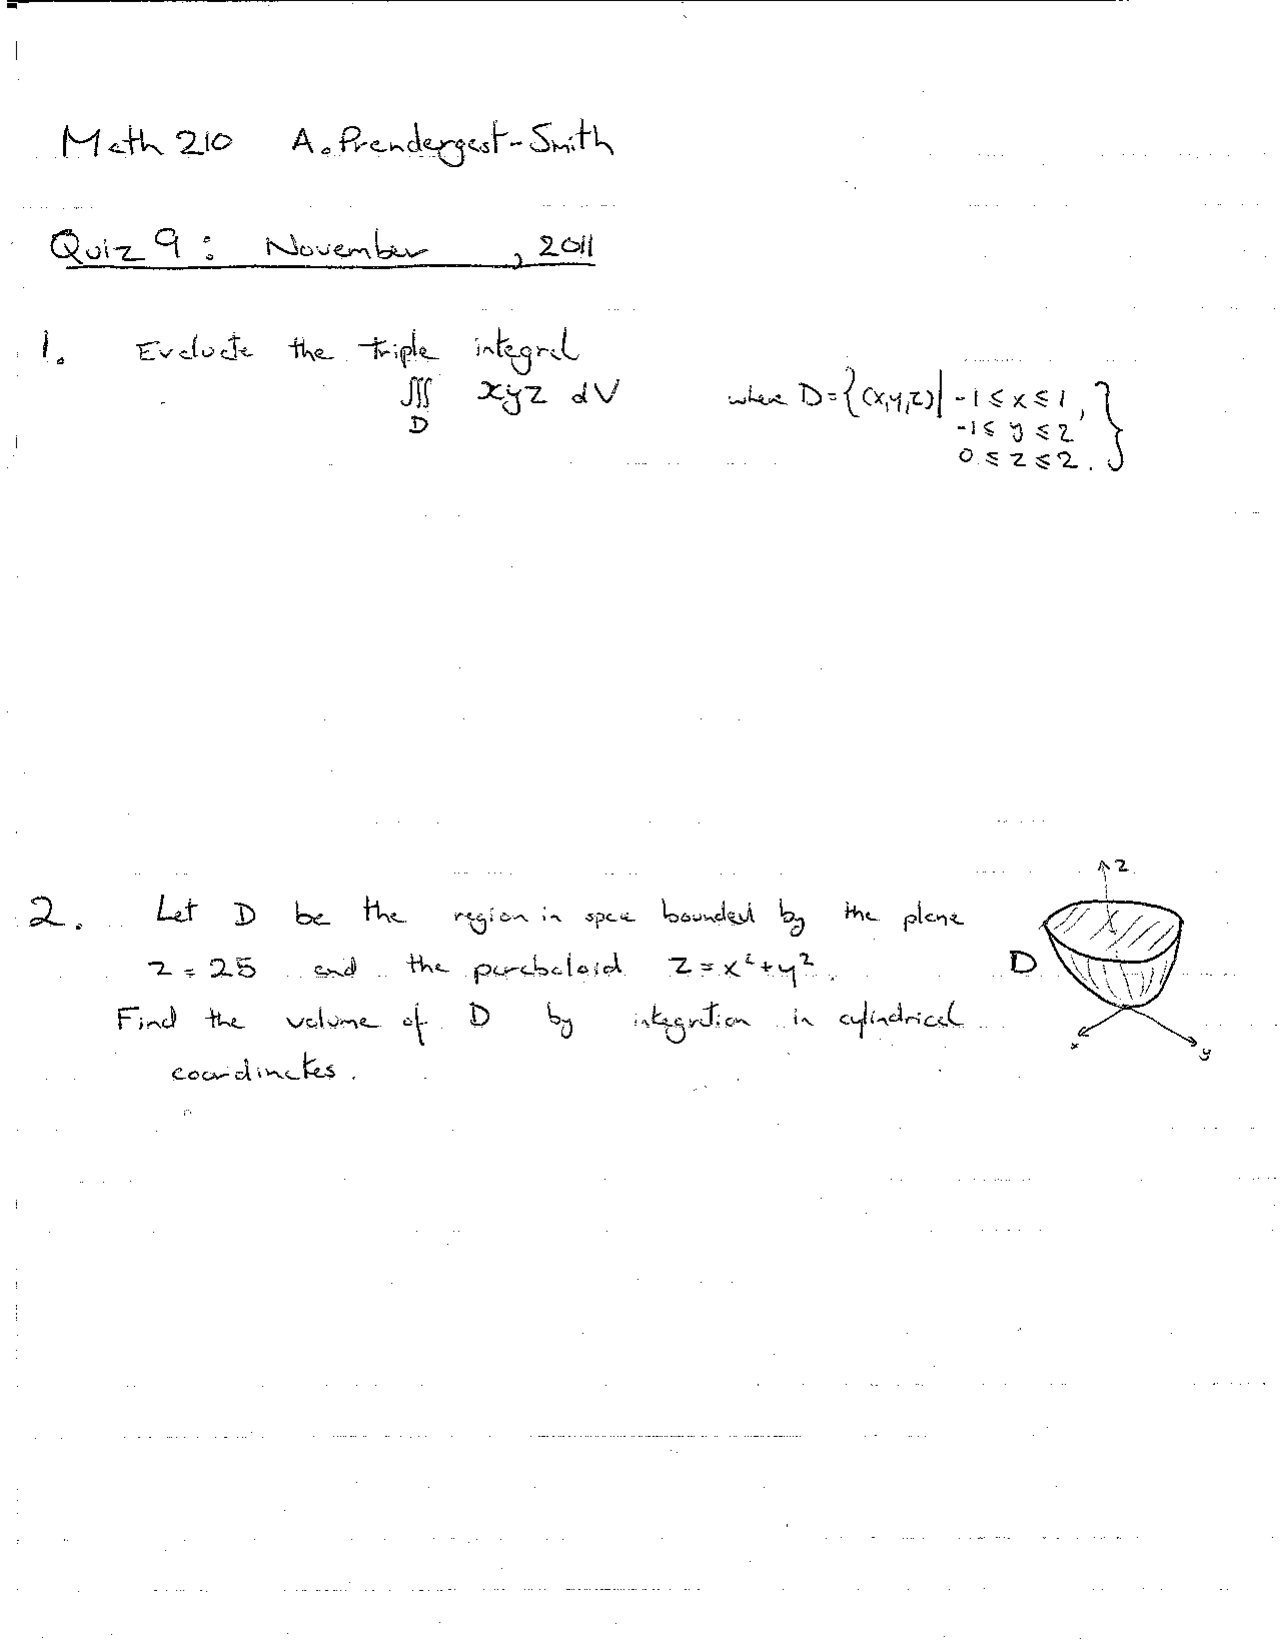 Math 210 A. Prendergast-Smith
Quiz 9: November , 2011
1. Evaluate the triple integral
∭ xyz dV where D = {(x,y,z) | -1 ≤ x ≤ 1,
D -1 ≤ y ≤ 2
0 ≤ z ≤ 2. }
z
2. Let D be the region in space bounded by the plane
z = 25 and the paraboloid z = x² + y².
D
Find the volume of D by integration in cylindrical
x y
coordinates.